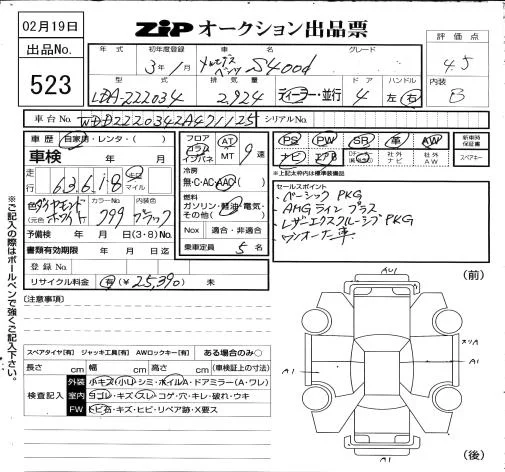 02月19日
ZIP オークション出品票
出品No.
523
年式 初年度登録 車名 グレード
3年1月 メルセデスベンツ S400d
評価点
4.5
型式 排気量 ドア ハンドル
LDA-222034 2,924 ディーラー・並行 4 左 右
内装
B
車台No. WDD2220342A471125 シリアルNo.
車歴 自家用・レンタ・( )
車検 年 月
走行 63,618 キロ マイル
色 ダイヤモンドホワイト カラーNo. 799 内装色 ブラック
(元色 )
予備検 年 月 日(3・8)No.
書類有効期限 年 月 日迄
登録No.
リサイクル料金 有(¥25,390) 未
フロア コラム インパネ AT MT 9速
冷房
無・C・AC・AAC( )
燃料
ガソリン・軽油・電気・その他( )
Nox 適合・非適合
乗車定員 5名
PS PW SR 革 AW 新車時保証書
ナビ エアB 社外ナビ 社外AW スペアキー
※上記太枠内は標準装備品
セールスポイント
・ベーシック PKG
・AMGライン プラス
・レザーエクスクルーシブPKG
・ワンオーナー車
(注意事項)
※ご記入の際はボールペンで強くご記入下さい。
スペアタイヤ[有] ジャッキ工具[有] AWロックキー[有] ある場合のみ〇
長さ cm 幅 cm 高さ cm (車検証上の寸法)
検査記入
外装 小キズ(小U)シミ・ホイルA・ドアミラー(A・ワレ)
室内 ヨゴレ・キズ(スレ)コゲ・穴・キレ・破れ・ウキ
FW トビ石・キズ・ヒビ・リペア跡・X要ス
(前)
AU1
スリA
A1
A1
A1
(後)